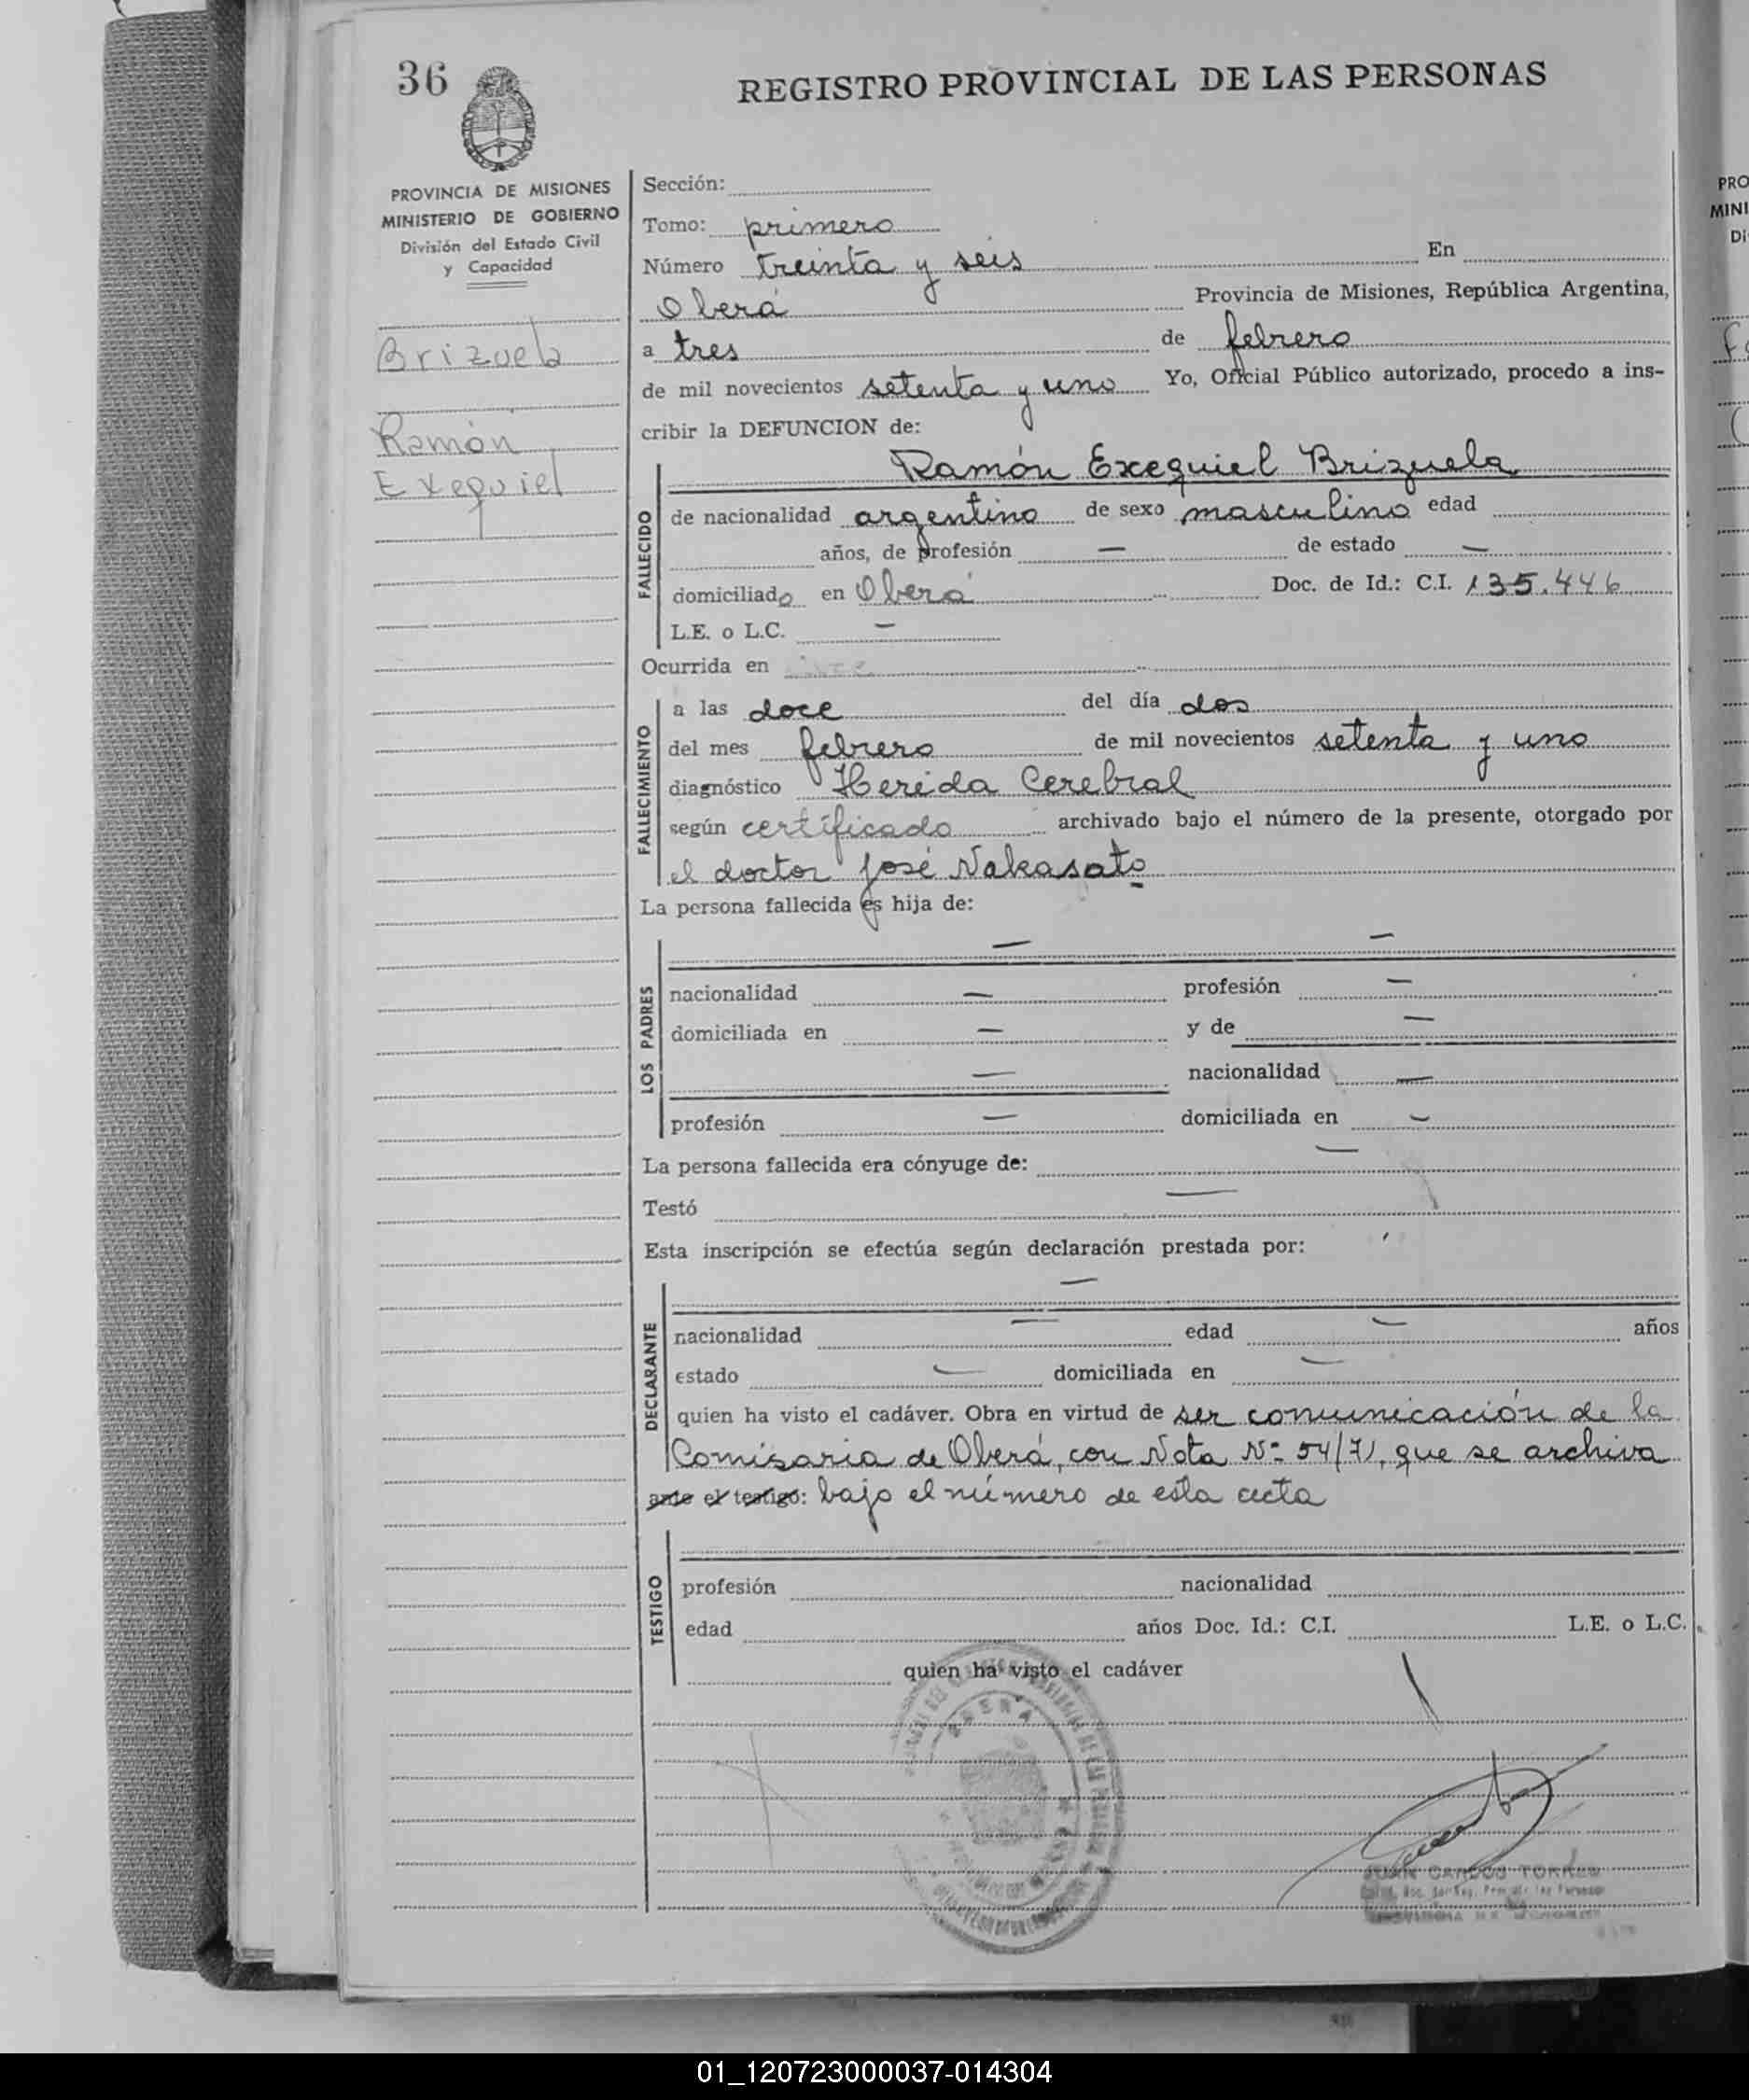 36
REGISTRO PROVINCIAL DE LAS PERSONAS
PROVINCIA DE MISIONES
MINISTERIO DE GOBIERNO
División del Estado Civil
y Capacidad
Brizuela
Ramón
Exequiel
Sección:
Tomo: primero
Número treinta y seis En
Oberá Provincia de Misiones, República Argentina,
a tres de febrero
de mil novecientos setenta y uno Yo, Oficial Público autorizado, procedo a ins-
cribir la DEFUNCION de:
Ramón Exequiel Brizuela
FALLECIDO
de nacionalidad argentino de sexo masculino edad
años, de profesión — de estado —
domiciliado en Oberá Doc. de Id.: C.I. 135.446
L.E. o L.C. —
Ocurrida en
FALLECIMIENTO
a las doce del día dos
del mes febrero de mil novecientos setenta y uno
diagnóstico Herida Cerebral
según certificado archivado bajo el número de la presente, otorgado por
el doctor José Nakasato
La persona fallecida es hija de:
— —
LOS PADRES
nacionalidad — profesión —
domiciliada en — y de —
— nacionalidad —
profesión — domiciliada en —
La persona fallecida era cónyuge de: —
Testó —
Esta inscripción se efectúa según declaración prestada por:
—
DECLARANTE
nacionalidad — edad — años
estado — domiciliada en —
quien ha visto el cadáver. Obra en virtud de ser comunicación de la
Comisaria de Oberá, con Nota Nº 54/71, que se archiva
ante el testigo: bajo el número de esta acta
TESTIGO
profesión nacionalidad
edad años Doc. Id.: C.I. L.E. o L.C.
quien ha visto el cadáver
OBERA
JUAN CARLOS TORRES
PRO
MINI
Di
01_120723000037-014304